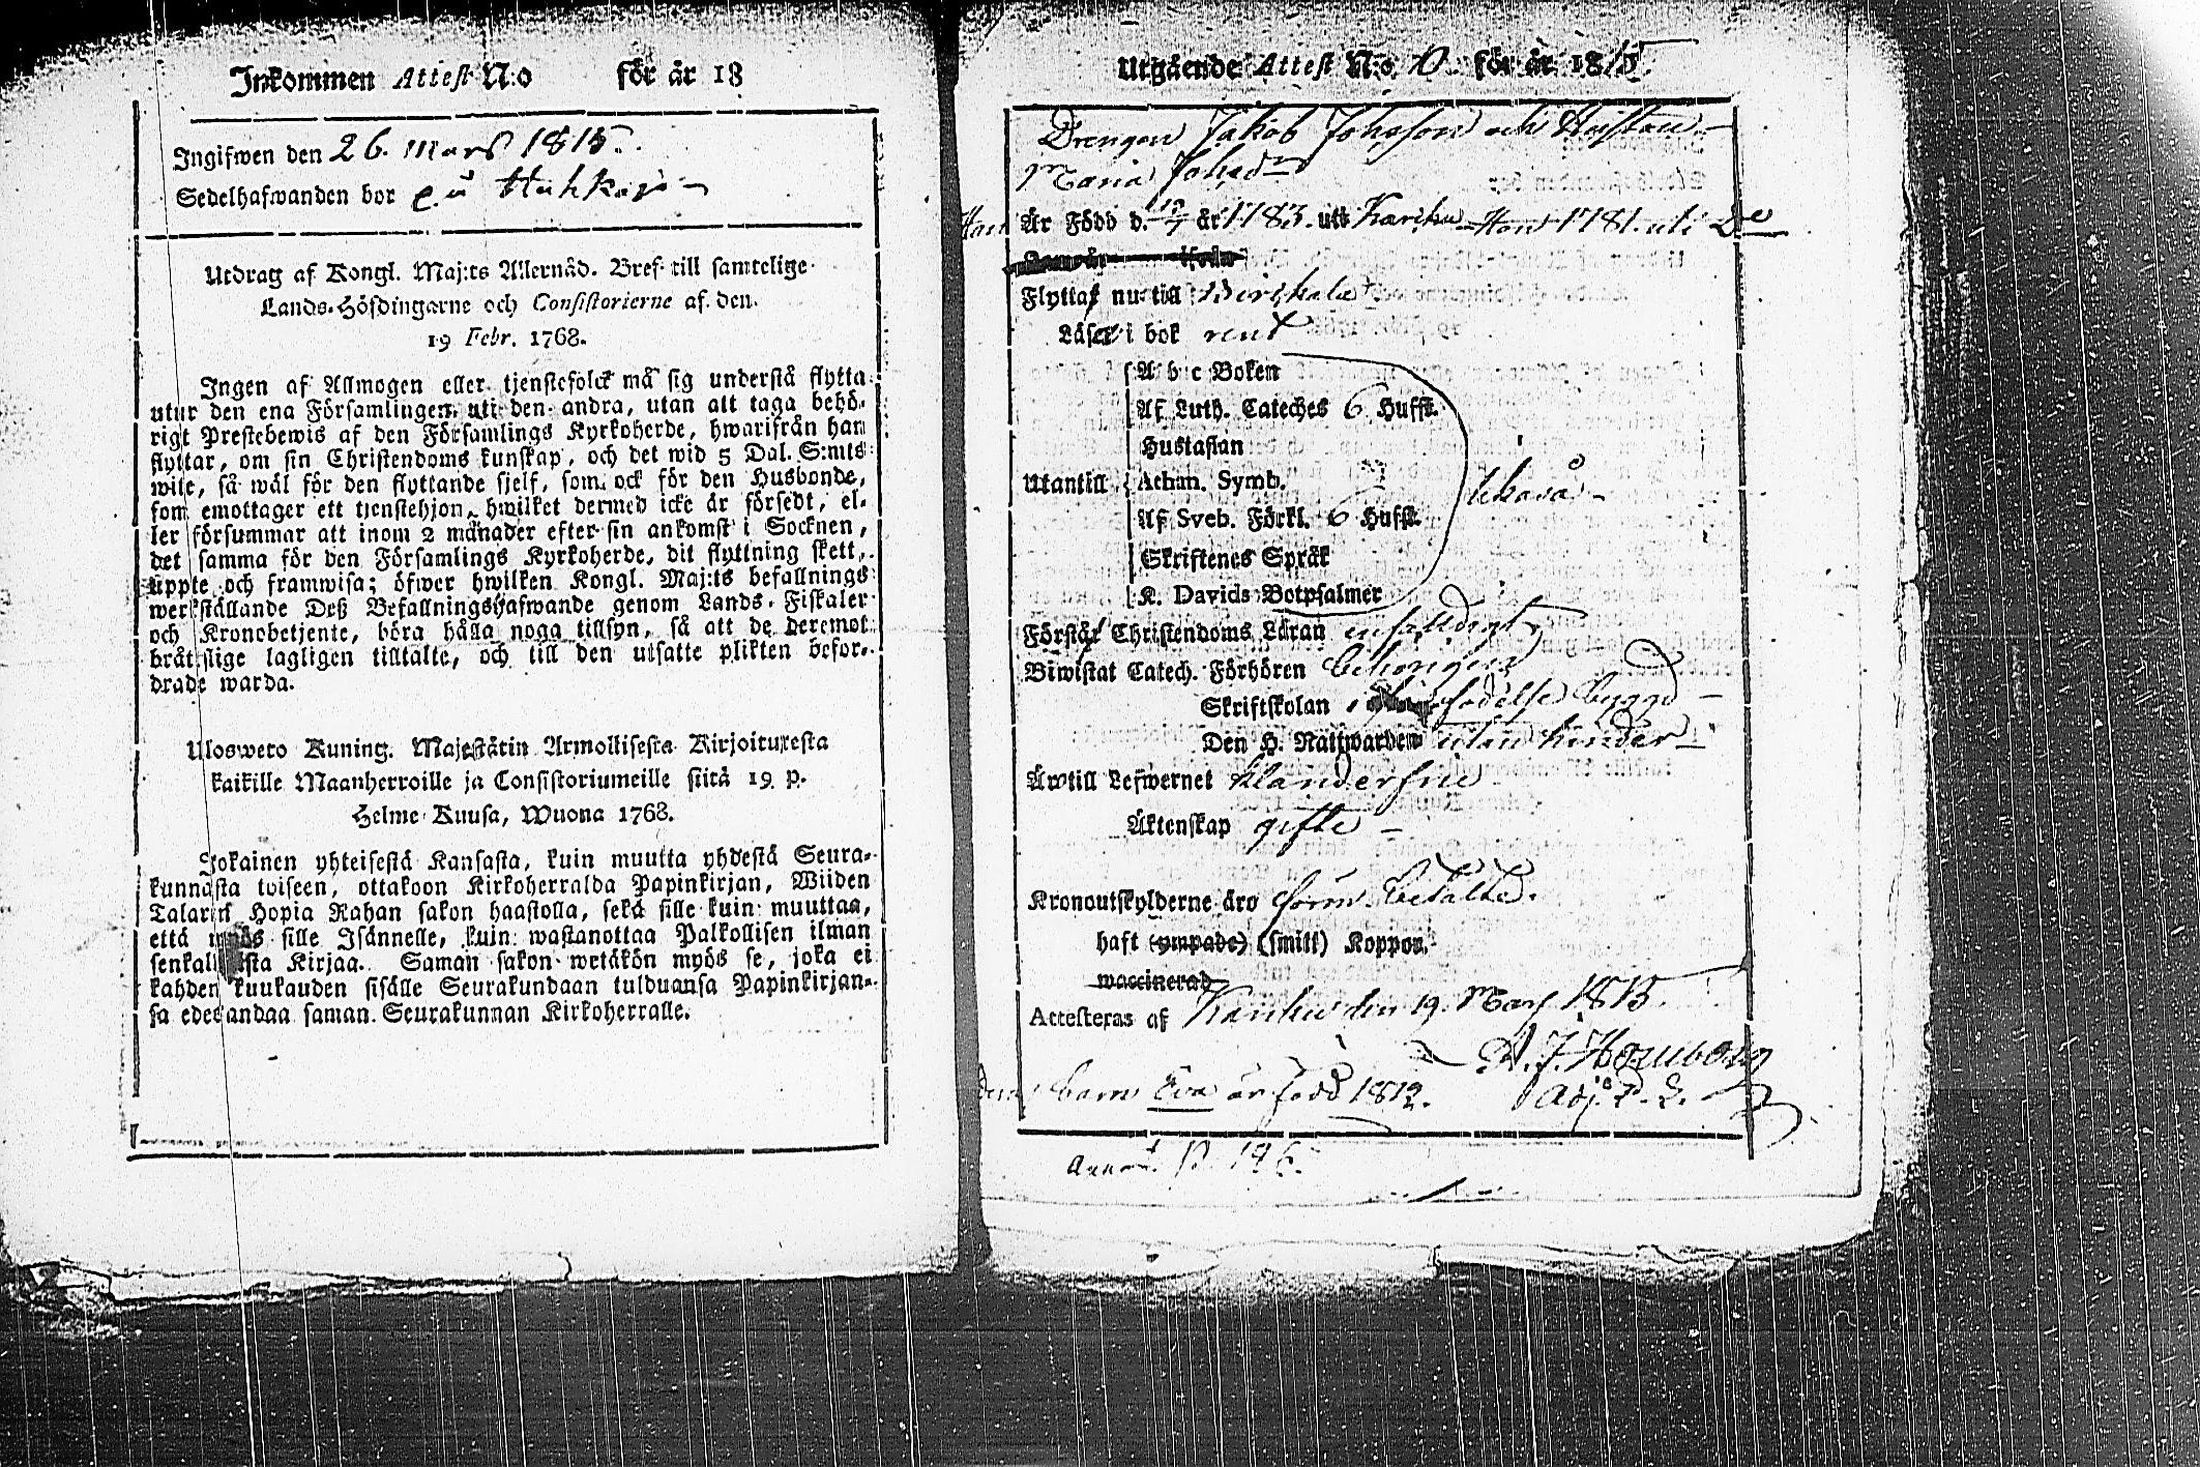 Inkommen Attest N:o för år 18
Ingifwen den 26. Mars 1815.
Sedelhafwanden bor på
Utdrag af Kongl. Maj:ts Allernåd. Bref till samtelige
Lands-Höfdingarne och Consistorierne af den
19 Febr. 1768.
Ingen af Allmogen eller tjenstefolck må sig understå flytta
utur den ena Församlingen uti den andra, utan att taga behö-
rigt Prestebewis af den Församlings Kyrkoherde, hwarifrån han
flyttar, om sin Christendoms kunskap, och det wid 5 Dal. S:mts
wite, så wäl för den flyttande sjelf, som ock för den Husbonde,
som emottager ett tjenstehjon, hwilket dermed icke är försedt, el-
ler försummar att inom 2 månader efter sin ankomst i Socknen,
det samma för den Församlings Kyrkoherde, dit flyttning skett,
uppte och framwisa; öfwer hwilken Kongl. Maj:ts befallnings
werkställande Deß Befallningshafwande genom Lands-Fiskaler
och Kronobetjente, böra hålla noga tillsyn, så att de deremot
bråtslige lagligen tilltalte, och till den utsatte plikten befor-
drade warda.
Ulosweto Kuning. Majestätin Armollisesta Kirjoituxesta
kaikille Maanherroille ja Consistoriumeille siitä 19 p.
Helme-Kuusa, Wuona 1768.
Jokainen yhteisestä Kansasta, kuin muutta yhdestä Seura-
kunnasta toiseen, ottakoon Kirkoherralda Papinkirjan, Wiiden
Talarin Hopia Rahan sakon haastolla, sekä sille kuin muuttaa,
että myös sille Isännelle, kuin wastanottaa Palkollisen ilman
senkaltaista Kirjaa. Saman sakon wetäkön myös se, joka ei
kahden kuukauden sisälle Seurakundaan tulduansa Papinkirjan-
sa edesandaa saman Seurakunnan Kirkoherralle.
Utgående Attest N:o 10. för år 1815.
Drengen Jakob Johansson och Hustru
Maria Johsdr
Han Är Född d. 19/7 år 1783. uti Karcku Hon 1781. uti Do
Flyttar nu till Birckala
Läser i bok rent
A b c Boken
Af Luth. Cateches 6 Hufst.
Hustaflan
Utantill Athan. Symb.
Af Sveb. Förkl. 6 Hufst.
Skriftenes Språk
K. Davids Botpsalmer
Förstår Christendoms Läran enfaldigt
Biwistat Catech. Förhören behörigen
Skriftskolan i födelse bygd
Den H. Nattwarden utan hinder
Är till Lefwernet klanderfrie
Äktenskap gifte
Kronoutskylderne äro betalte.
haft (ympade) (smitt) Koppor,
waccinerad
Attesteras af Karcku den 19. Mars 1815.
barn Eva är född 1812. Adj.